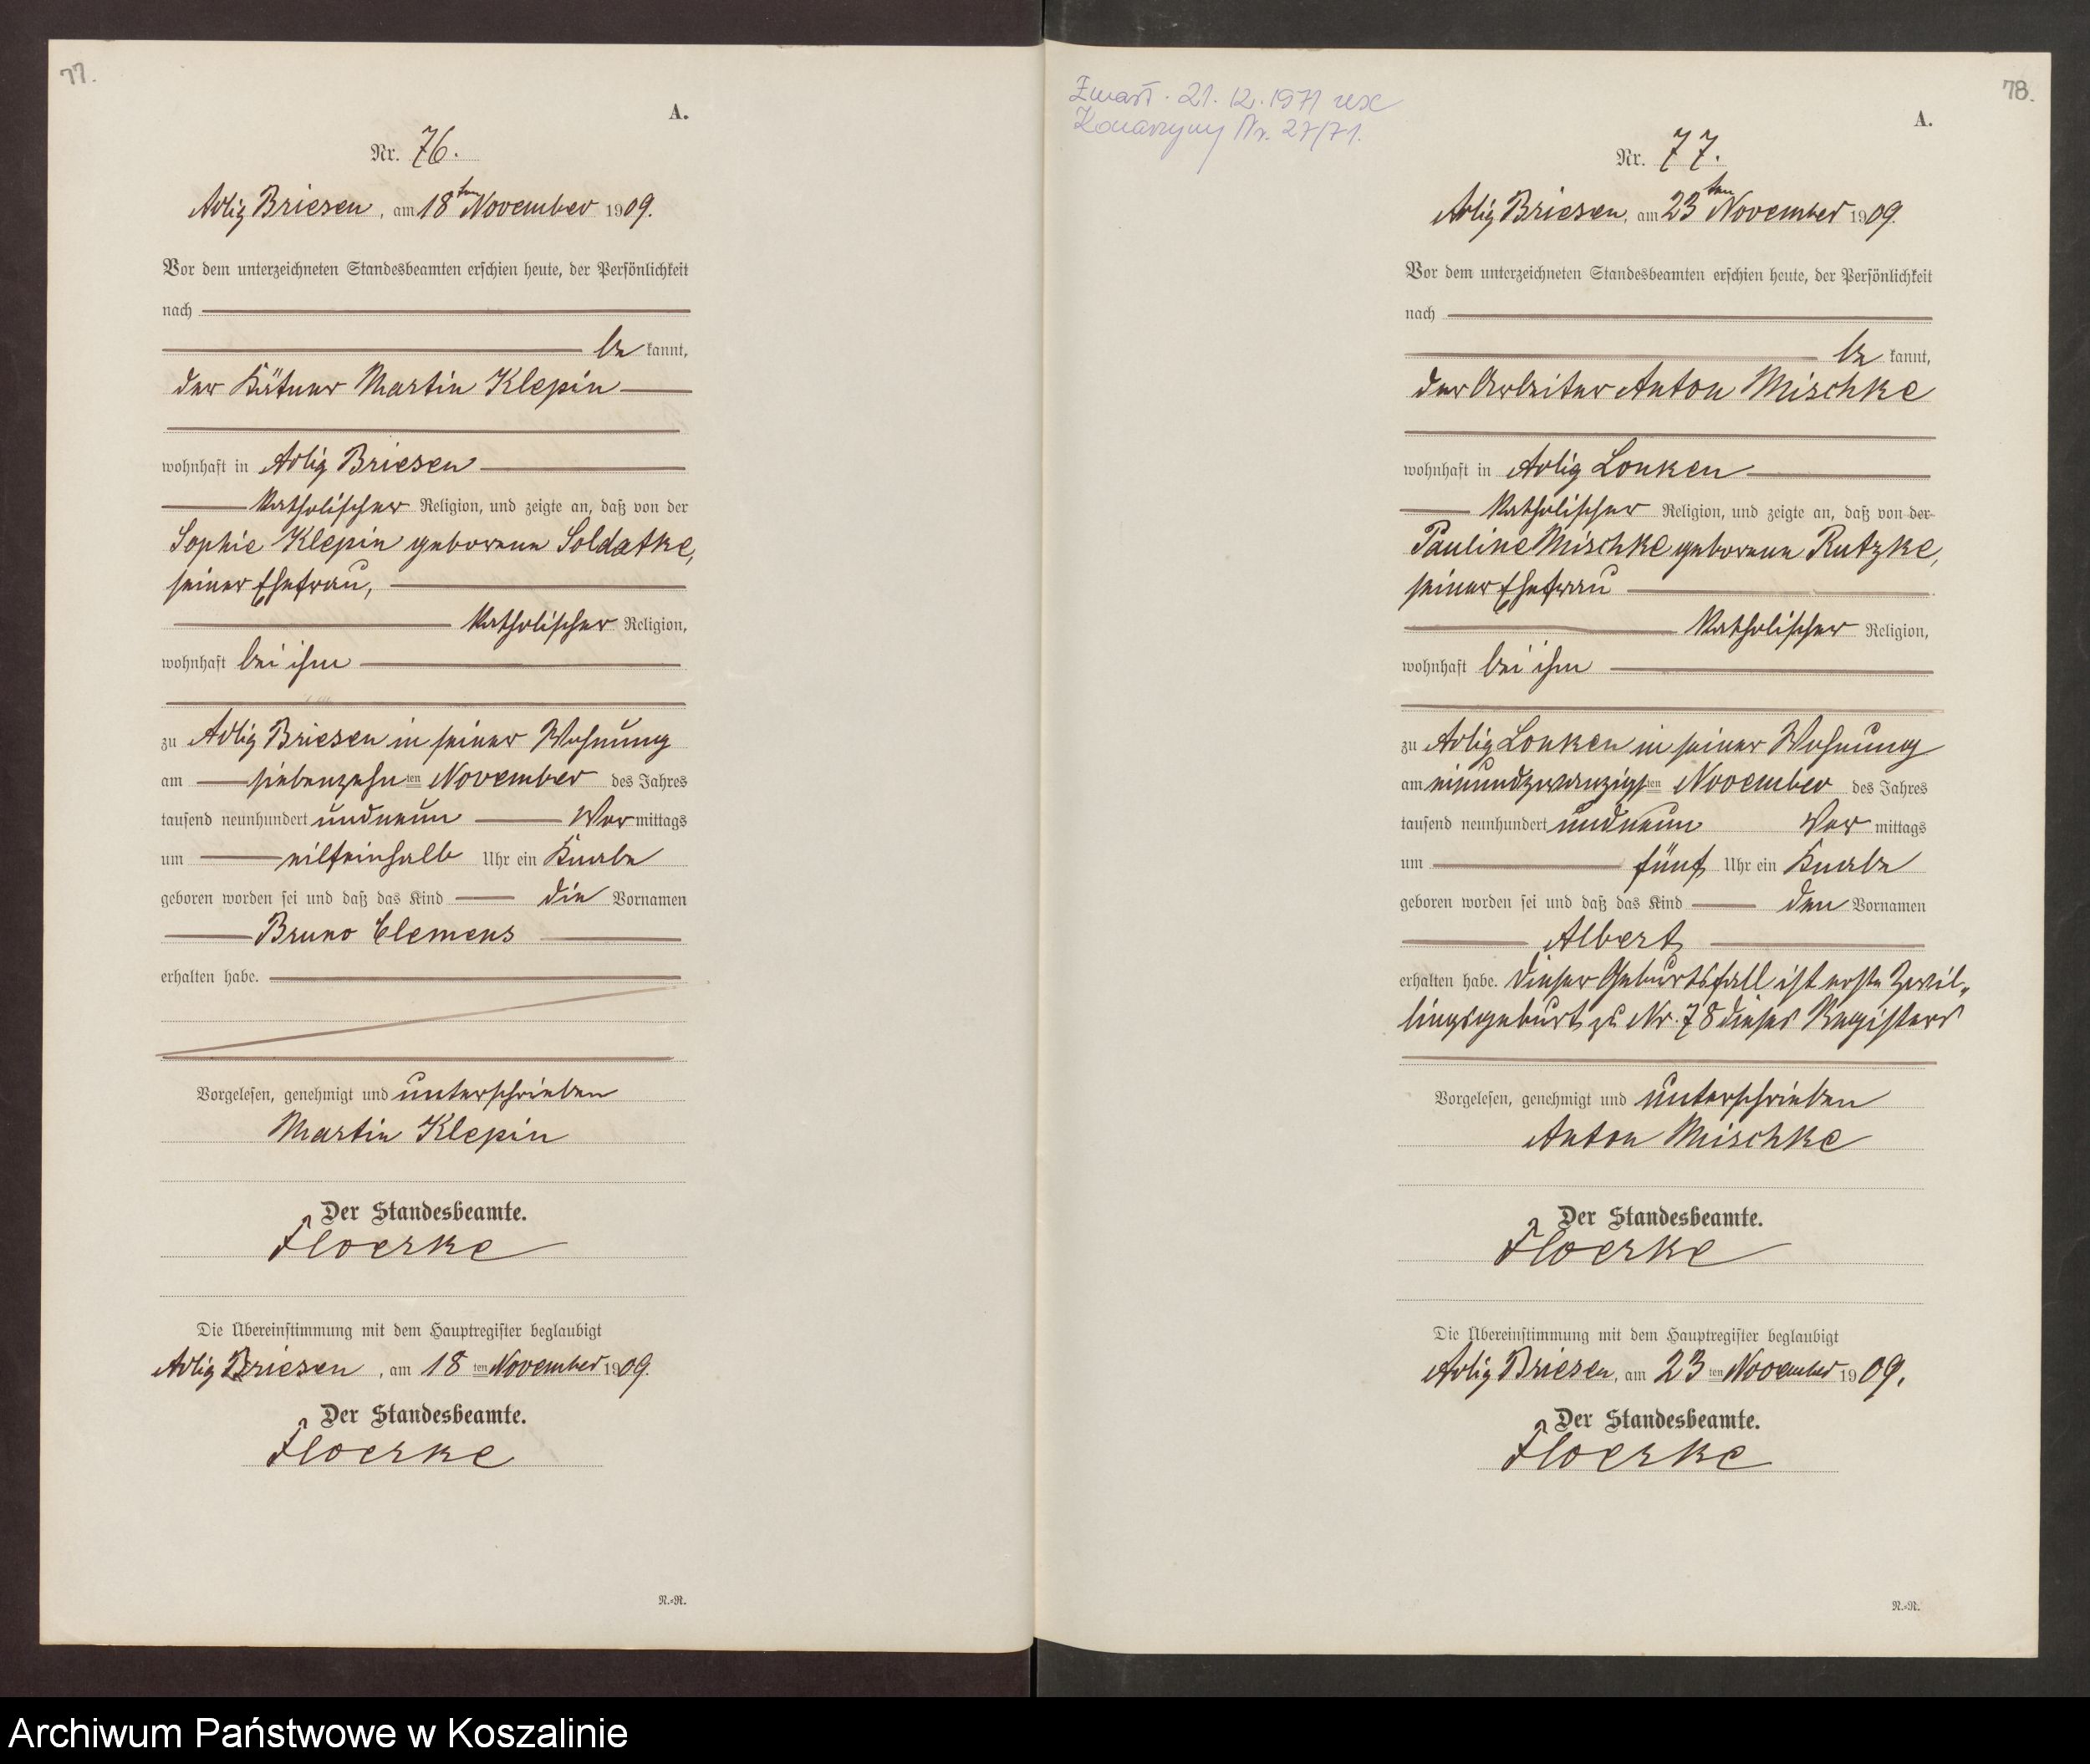 77.
A.
Nr. 76.
Adlig Briesen, am 18ten November 1909.
Vor dem unterzeichneten Standesbeamten erschien heute, der Persönlichkeit
nach
be kannt,
der Kätner Martin Klepin
wohnhaft in Adlig Briesen
katholischer Religion, und zeigte an, daß von der
Sophie Klepin geborene Soldatke,
seiner Ehefrau,
katholischer Religion,
wohnhaft bei ihm
zu Adlig Briesen in seiner Wohnung
am siebenzehnten November des Jahres
tausend neunhundert undneun Vor mittags
um eilfeinhalb Uhr ein Knabe
geboren worden sei und daß das Kind die Vornamen
Bruno Clemens
erhalten habe.
Vorgelesen, genehmigt und unterschrieben
Martin Klepin
Der Standesbeamte.
Floerke
Die Übereinstimmung mit dem Hauptregister beglaubigt
Adlig Briesen, am 18ten November 1909.
Der Standesbeamte.
Floerke
N.-N.
78.
Zmarł. 21.12.1971 USC
Konarzyny Nr. 27/71.
A.
Nr. 77.
Adlig Briesen, am 23ten November 1909.
Vor dem unterzeichneten Standesbeamten erschien heute, der Persönlichkeit
nach
be kannt,
der Arbeiter Anton Mischke
wohnhaft in Adlig Lonken
katholischer Religion, und zeigte an, daß von der
Pauline Mischke geborene Rutzke,
seiner Ehefrau
katholischer Religion,
wohnhaft bei ihm
zu Adlig Lonken in seiner Wohnung
am einundzwanzigsten November des Jahres
tausend neunhundert undneun Vor mittags
um fünf Uhr ein Knabe
geboren worden sei und daß das Kind den Vornamen
Albert
erhalten habe. Dieser Geburtsfall ist erste Zwil-
lingsgeburt zu Nr. 78 dieses Registers
Vorgelesen, genehmigt und unterschrieben
Anton Mischke
Der Standesbeamte.
Floerke
Die Übereinstimmung mit dem Hauptregister beglaubigt
Adlig Briesen, am 23ten November 1909.
Der Standesbeamte.
Floerke
N.-N.
Archiwum Państwowe w Koszalinie